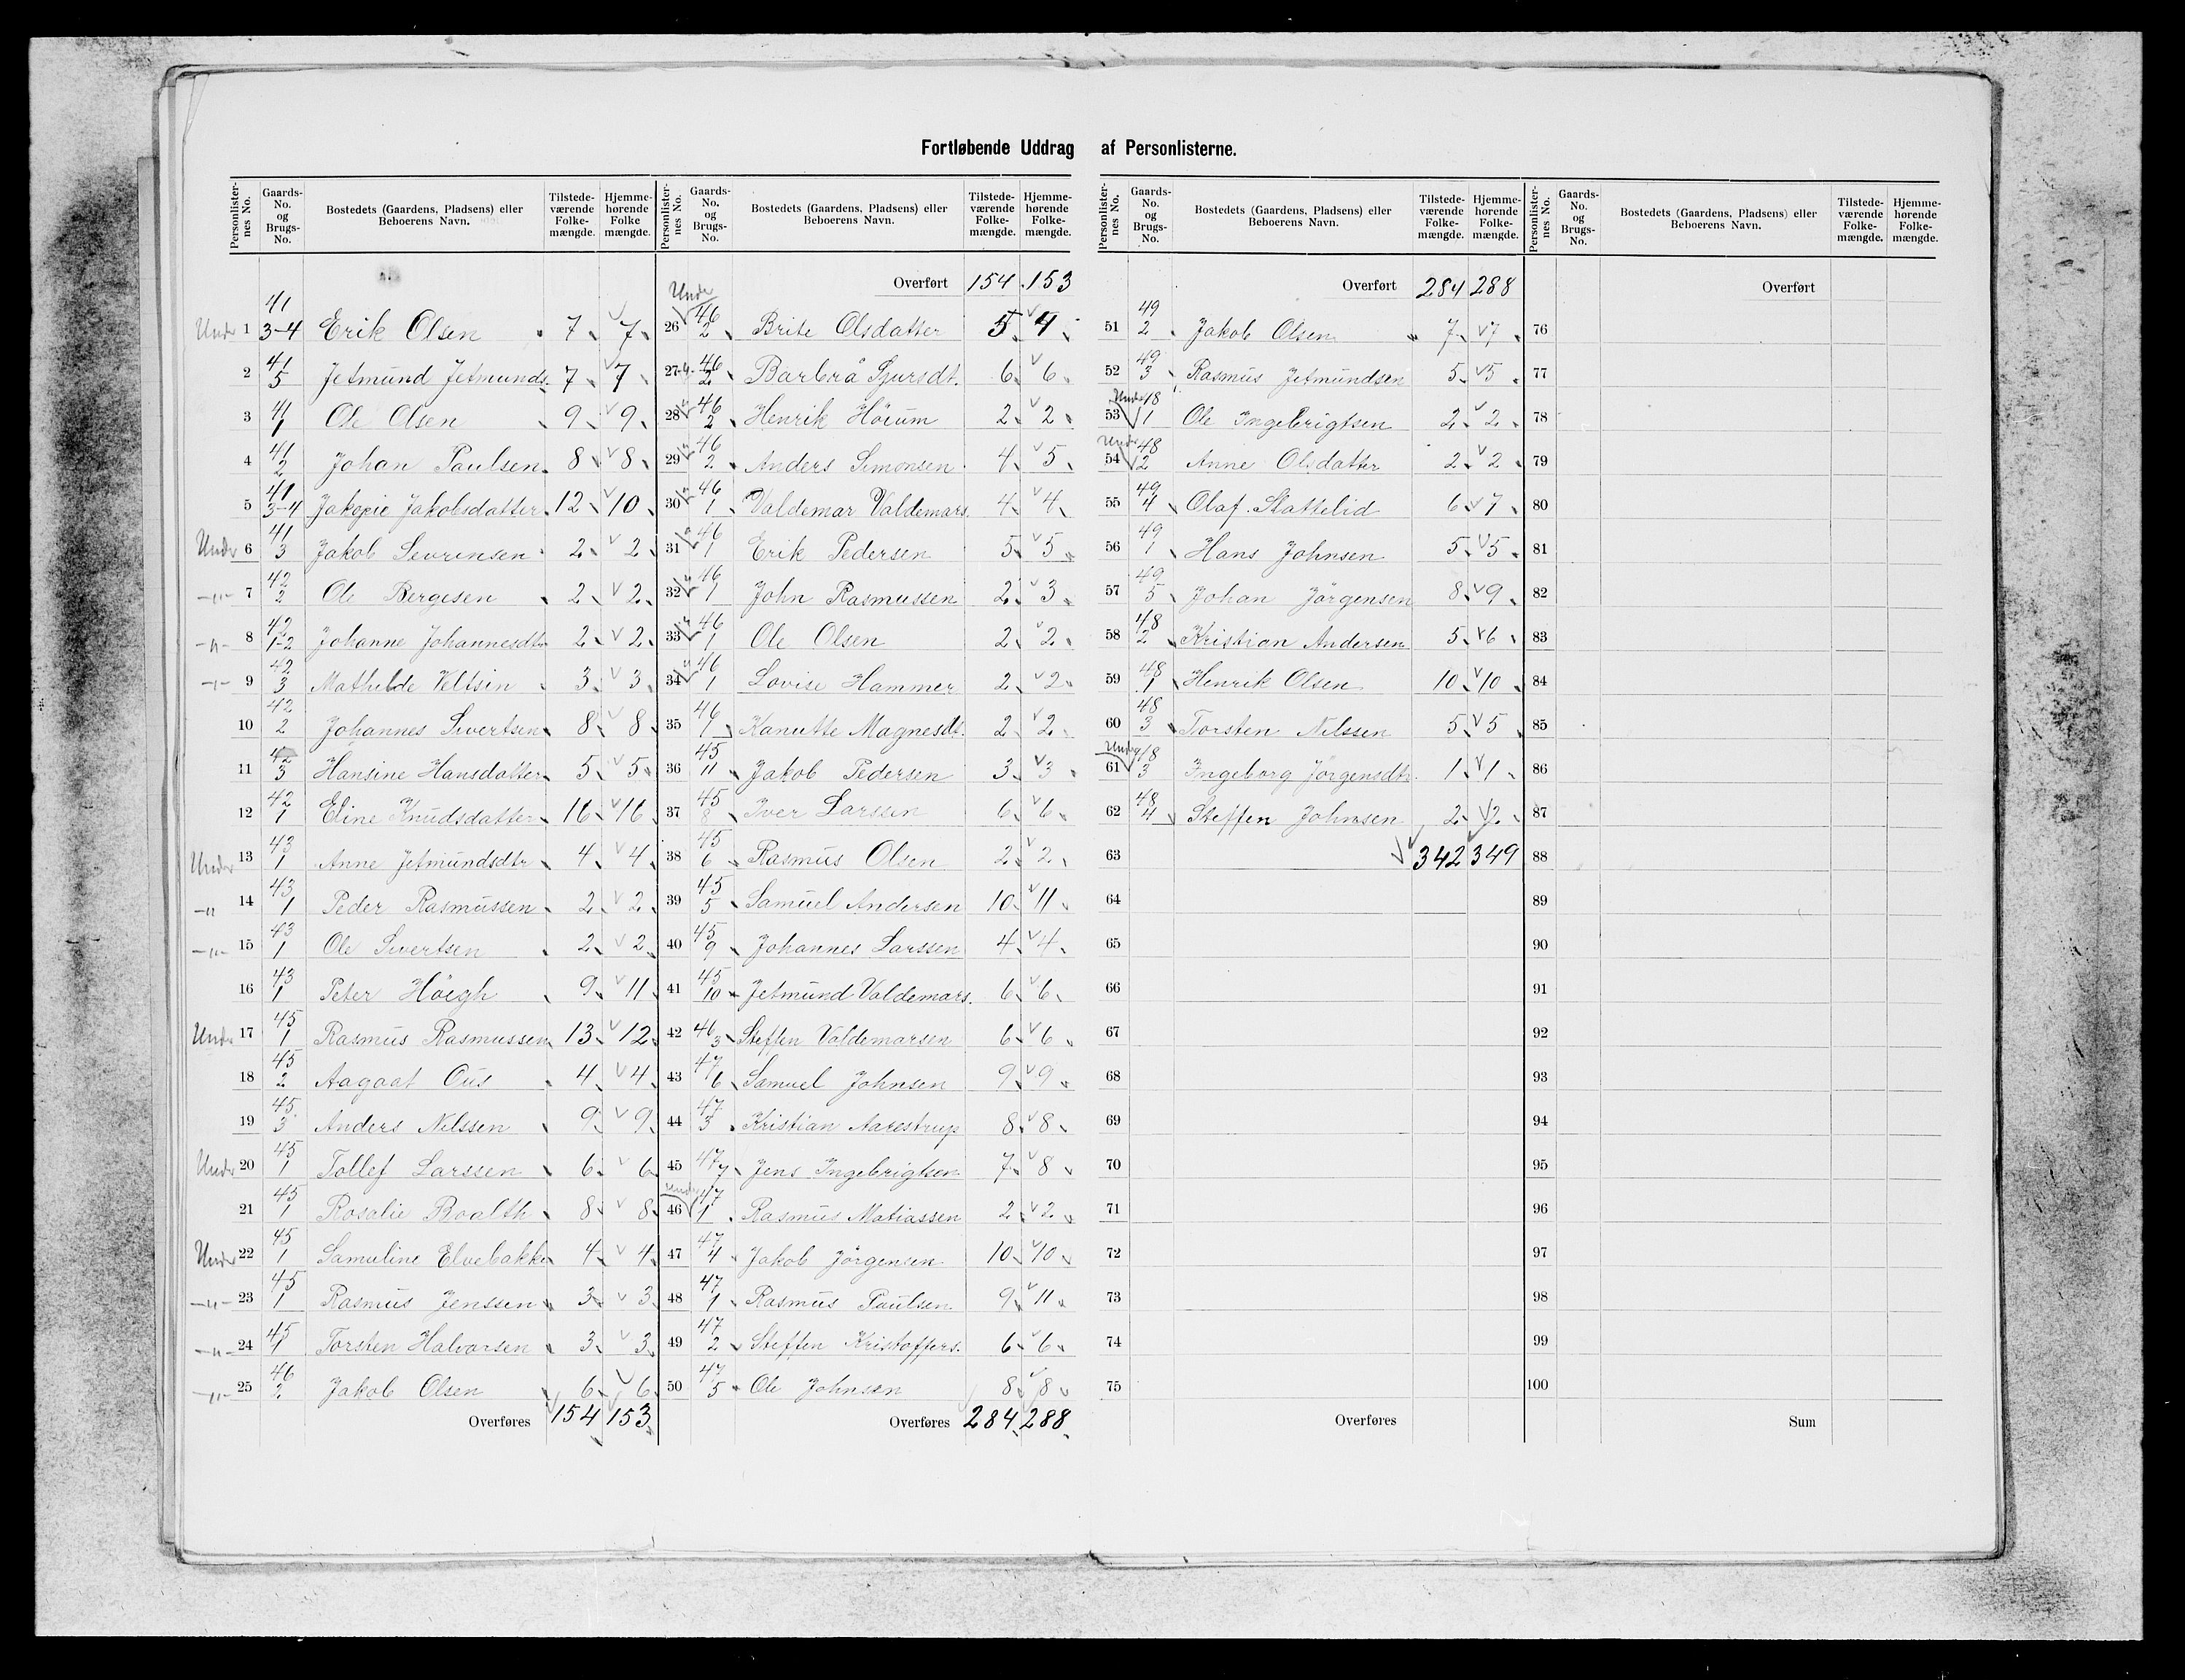 Fortløbende Uddrag af Personlisterne.
Personlisternes No. Gaards-No. og Brugs-No. Bostedets (Gaardens, Pladsens) eller Beboerens Navn. Tilstedeværende Folkemængde. Hjemmehørende Folkemængde.
Under 1 41 3-4 Erik Olsen 7 7
2 41 5 Jetmund Jetmunds. 7 7
3 41 1 Ole Olsen 9 9
4 41 2 Johan Paulsen 8 8
5 41 3-4 Jakopie Jakobsdatter 12 10
Under 6 41 3 Jakob Sevrensen 2 2
-"- 7 42 2 Ole Bergesen 2 2
-"- 8 42 1-2 Johanne Johannesdtr 2 2
-"- 9 42 3 Mathilde Veltsin 3 3
10 42 2 Johannes Sivertsen 8 8
11 42 3 Hansine Hansdatter 5 5
12 42 1 Eline Knudsdatter 16 16
Under 13 43 1 Anne Jetmundsdtr 4 4
-"- 14 43 1 Peder Rasmussen 2 2
-"- 15 43 1 Ole Sivertsen 2 2
16 43 1 Peter Höegh 9 11
Under 17 45 1 Rasmus Rasmussen 13 12
18 45 2 Aagaat Ous 4 4
19 45 3 Anders Nilssen 9 9
Under 20 45 1 Tollef Larssen 6 6
21 45 1 Rosalie Boalth 8 8
Under 22 45 1 Samuline Elvebakke 4 4
-"- 23 45 1 Rasmus Jenssen 3 3
-"- 24 45 1 Torsten Halvorsen 3 3
-"- 25 46 2 Jakob Olsen 6 6
Overføres 154 153
Personlisternes No. Gaards-No. og Brugs-No. Bostedets (Gaardens, Pladsens) eller Beboerens Navn. Tilstedeværende Folkemængde. Hjemmehørende Folkemængde.
Overført 154 153
Under 26 46 2 Brite Olsdatter 5 4
27 " 46 2 Barbra Sjursdt. 6 6
28 " 46 2 Henrik Höium 2 2
29 " 46 2 Anders Simonsen 4 5
30 " 46 1 Valdemar Valdemars. 4 4
31 " 46 1 Erik Pedersen 5 5
32 " 46 1 John Rasmussen 2 3
33 " 46 1 Ole Olsen 2 2
34 " 46 1 Lovise Hammer 2 2
35 46 1 Kanutte Magnesdt. 2 2
36 45 11 Jakob Pedersen 3 3
37 45 8 Iver Larssen 6 6
38 45 6 Rasmus Olsen 2 2
39 45 5 Samuel Andersen 10 11
40 45 9 Johannes Larssen 4 4
41 45 10 Jetmund Valdemars. 6 6
42 46 3 Steffen Valdemarsen 6 6
43 47 6 Samuel Johnsen 9 9
44 47 3 Kristian Aarestrup 8 8
45 47 7 Jens Ingebrigtsen 7 8
Under 46 47 1 Rasmus Matiassen 2 2
47 47 4 Jakob Jörgensen 10 10
48 47 1 Rasmus Paulsen 9 11
49 47 2 Steffen Kristoffers. 6 6
50 47 5 Ole Johnsen 8 8
Overføres 284 288
Personlisternes No. Gaards-No. og Brugs-No. Bostedets (Gaardens, Pladsens) eller Beboerens Navn. Tilstedeværende Folkemængde. Hjemmehørende Folkemængde.
Overført 284 288
51 49 2 Jakob Olsen 7 7
52 49 3 Rasmus Jetmundsen 5 5
Under 53 48 1 Ole Ingebrigtsen 2 2
Under 54 48 2 Anne Olsdatter 2 2
55 49 4 Olaf Slattelid 6 7
56 49 1 Hans Johnsen 5 5
57 49 5 Johan Jörgensen 8 9
58 48 2 Kristian Andersen 5 6
59 48 1 Henrik Olsen 10 10
60 48 3 Torsten Nilssen 5 5
Under 61 48 3 Ingeborg Jörgensdtr. 1 1
62 48 4 Steffen Johnsen 2 2
63 342 349
64
65
66
67
68
69
70
71
72
73
74
75
Overføres
Personlisternes No. Gaards-No. og Brugs-No. Bostedets (Gaardens, Pladsens) eller Beboerens Navn. Tilstedeværende Folkemængde. Hjemmehørende Folkemængde.
Overført
76
77
78
79
80
81
82
83
84
85
86
87
88
89
90
91
92
93
94
95
96
97
98
99
100
Sum